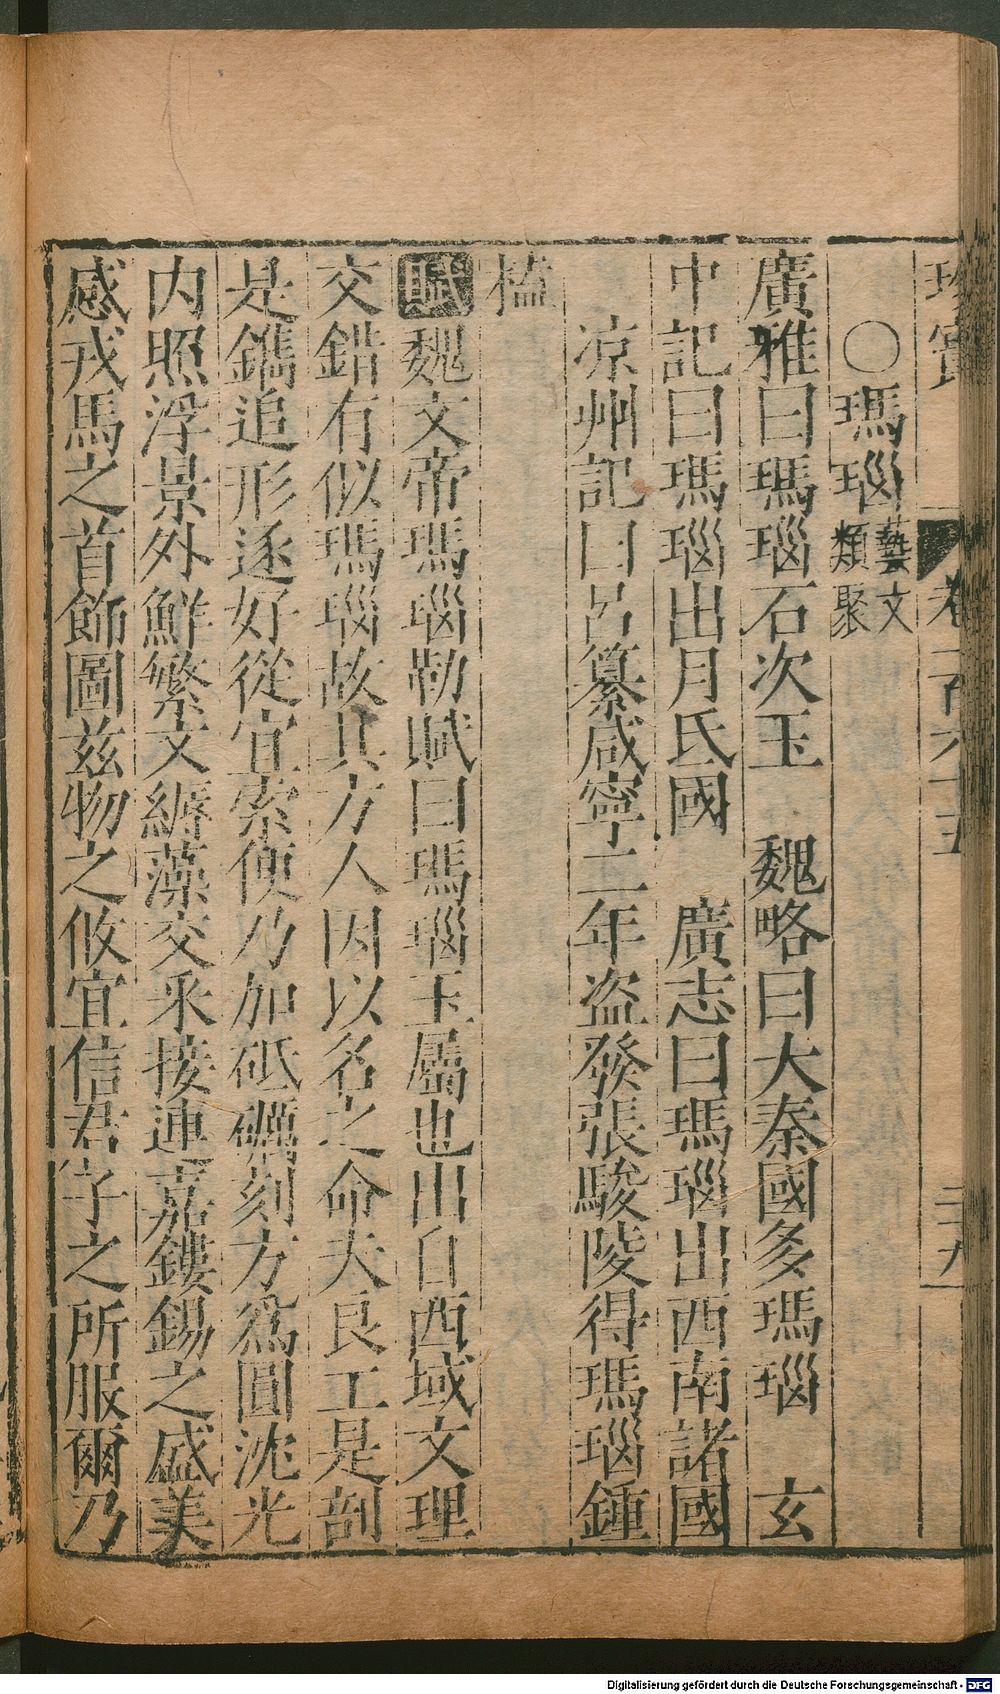 珍寶 卷一百六十五 二十九
○瑪瑙藝文類聚
廣雅曰瑪瑙石次玉 魏略曰大秦國多瑪瑙 玄
中記曰瑪瑙出月氏國 廣志曰瑪瑙出西南諸國
涼州記曰呂纂咸寧二年盗發張駿陵得瑪瑙鍾
榼
賦魏文帝瑪瑙勒賦曰瑪瑙玉屬也出自西域文理
交錯有似瑪瑙故其方人因以名之命夫良工是剖
是鐫追形逐好從宜索便乃加砥礪刻方爲圓沈光
内照浮景外鮮繁文縟藻交采接連嘉鏤錫之盛美
感戎馬之首飾圖兹物之攸宜信君子之所服爾乃
Digitalisierung gefördert durch die Deutsche Forschungsgemeinschaft - DFG